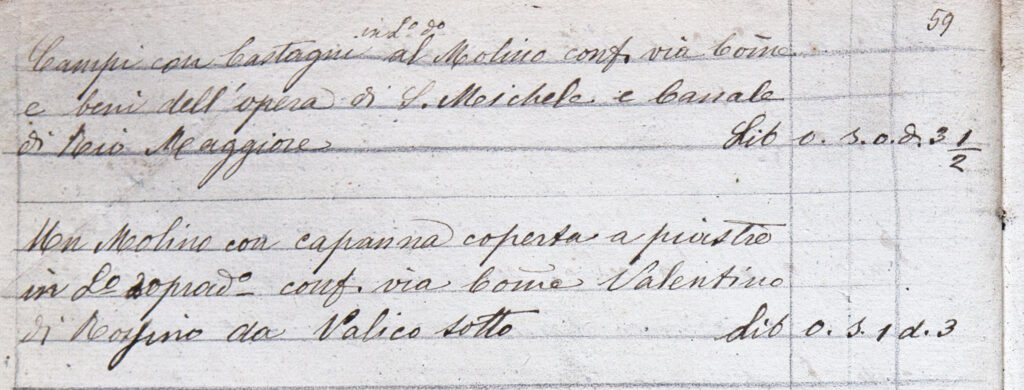 59
in L.o d.o
Campi con Castagni al Molino conf. via Com̃e
e beni dell'opera di S. Michele e Canale
di Rio Maggiore Lib 0. s. 0. d. 3 1/2
Un Molino con capanna coperta a piastre
in L.o soprad.o conf. via Com̃e Valentino
di da Valico sotto Lib 0. s. 1 d. 3